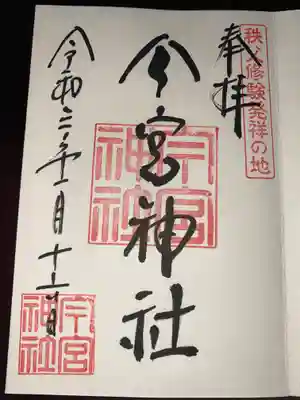 秩父修験発祥の地
奉拝
今宮神社
今宮
神社
令和 年 月 日
今宮
神社